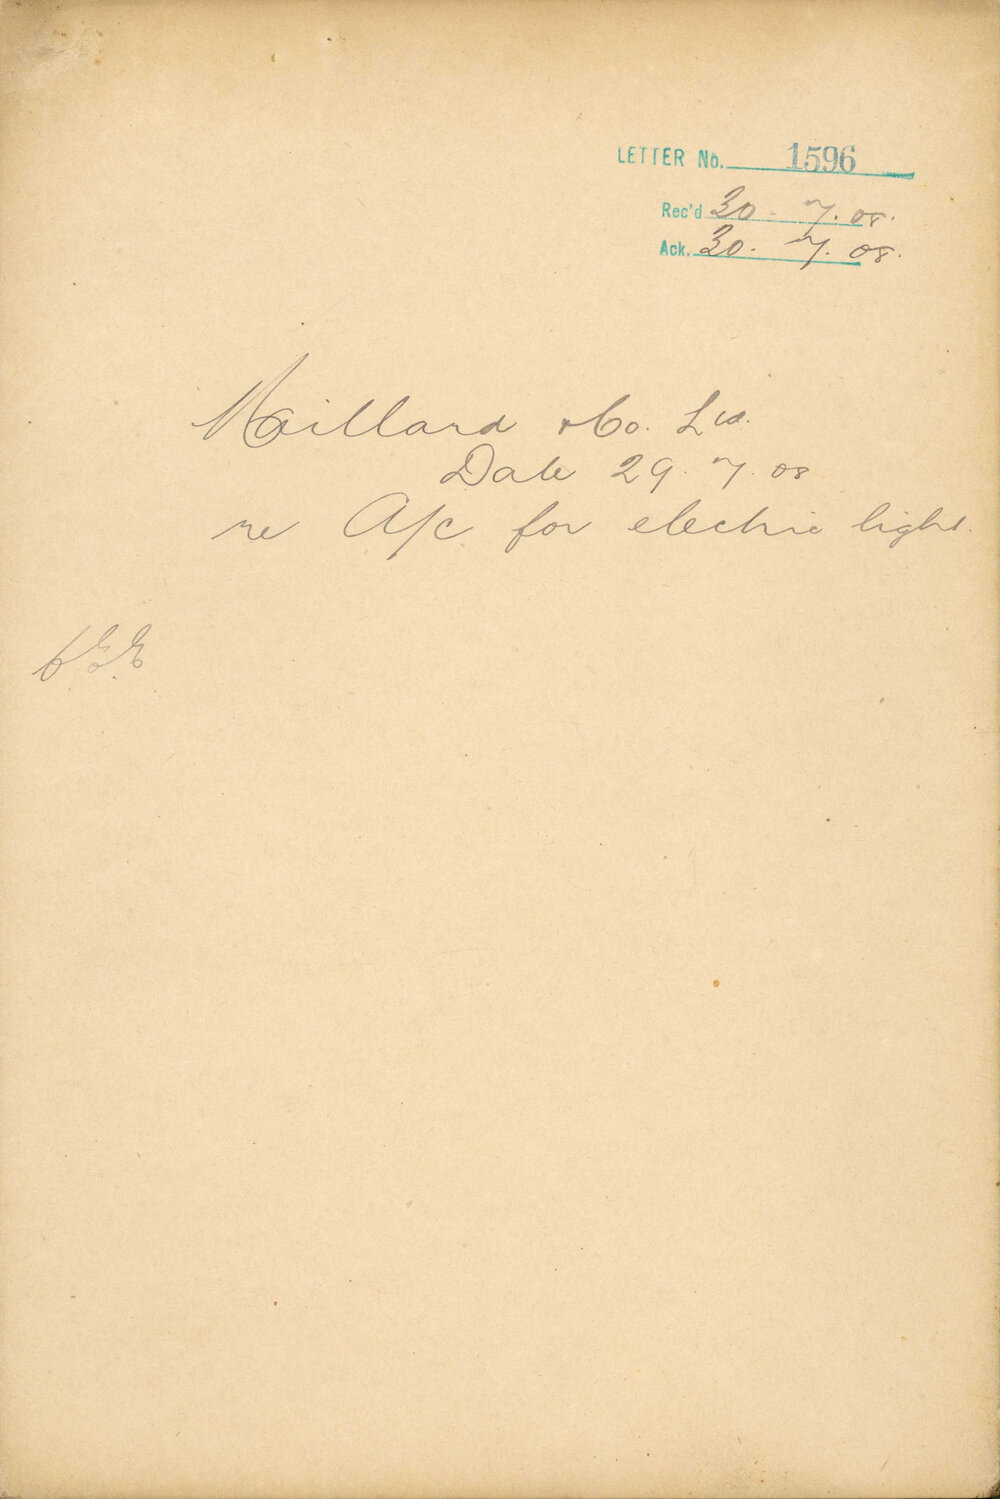 LETTER No. 1596
Rec'd 30 - 7. 08.
Ack. 30. 7. 08.
& Co. Ltd.
Date 29. 7. 08
re A/c for electric light.